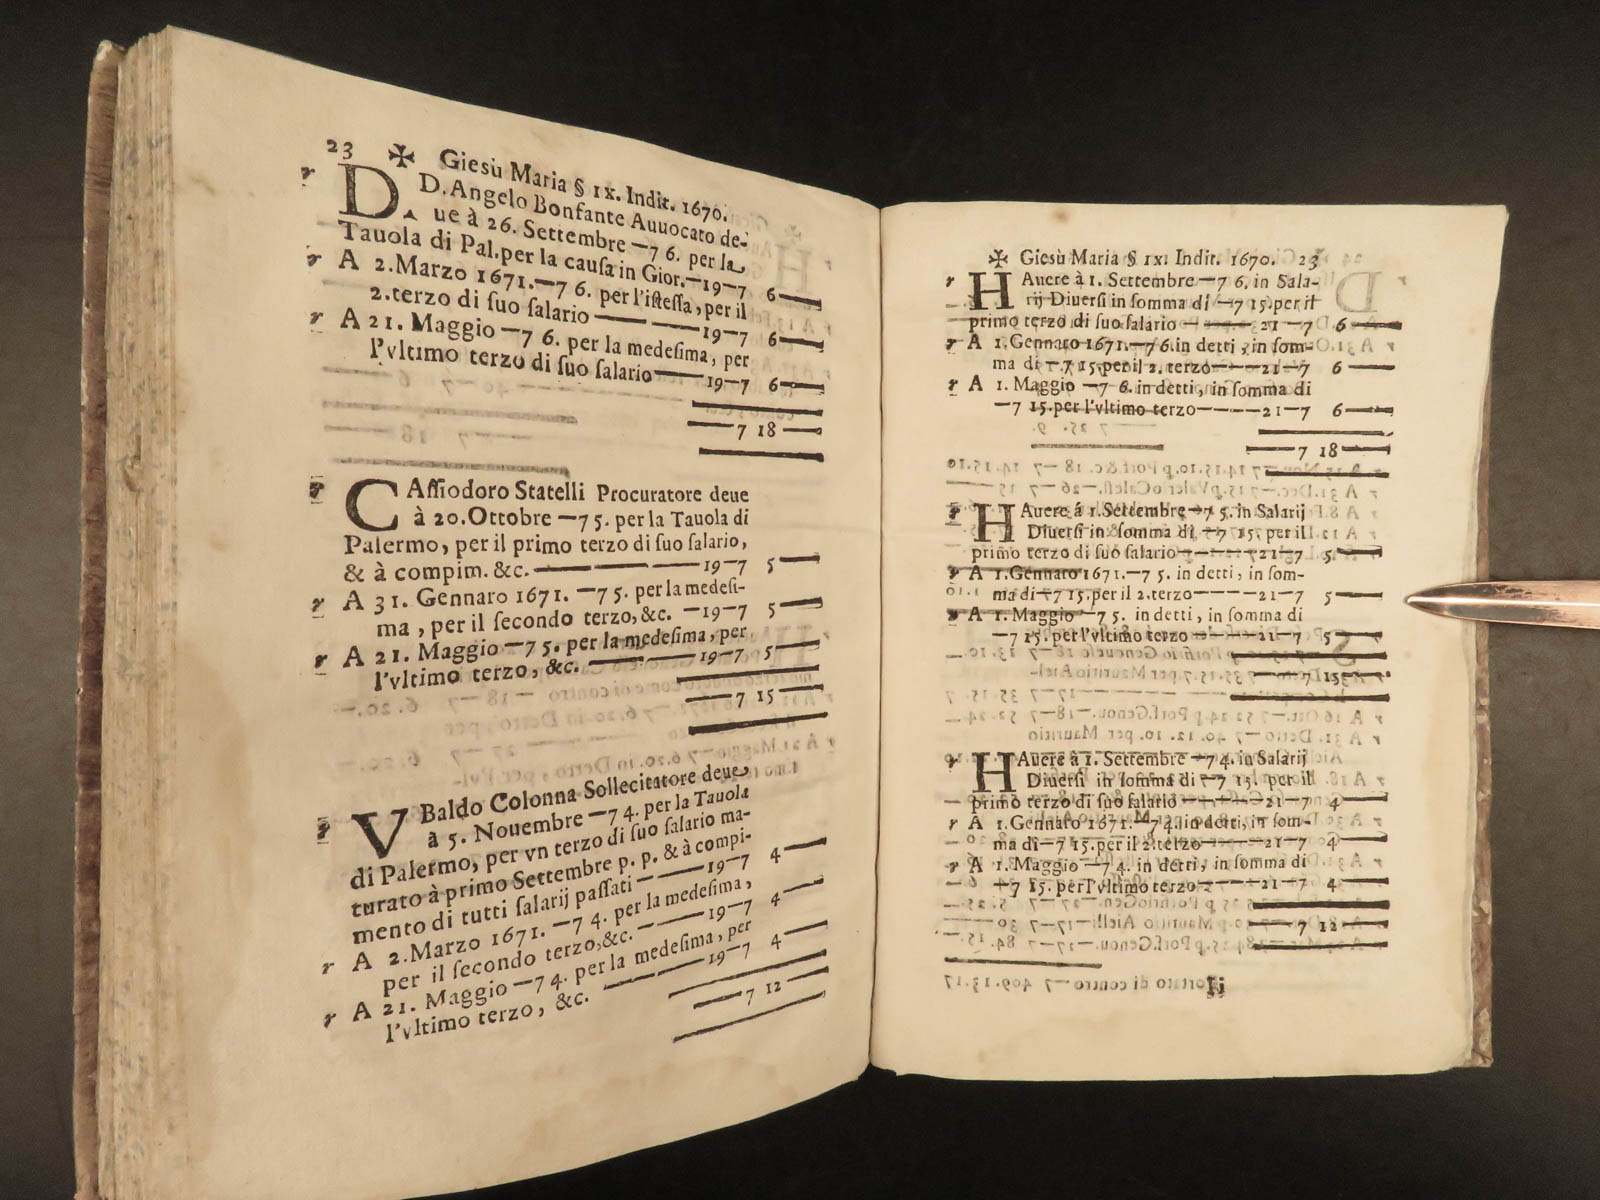 23 ✠ Giesù Maria § IX. Indit. 1670.
r D. D. Angelo Bonfante Auuocato de-
ue à 26. Settembre —7 6. per la
Tauola di Pal. per la causa in Gior. —19—7 6
r A 2. Marzo 1671. —7 6. per l'istessa, per il
2. terzo di suo salario —— —— 19—7 6
r A 21. Maggio —7 6. per la medesima, per
l'vltimo terzo di suo salario —— 19—7 6
7 18
r CAssiodoro Statelli Procuratore deue
à 20. Ottobre —7 5. per la Tauola di
Palermo, per il primo terzo di suo salario,
& à compim. &c. —— —— 19—7 5
r A 31. Gennaro 1671. —7 5. per la medesi-
ma, per il secondo terzo, &c. —19—7 5
r A 21. Maggio —7 5. per la medesima, per
l'vltimo terzo, &c. —— —19—7 5
7 15
r VBaldo Colonna Sollecitatore deue
à 5. Nouembre —7 4. per la Tauola
di Palermo, per vn terzo di suo salario ma-
turato à primo Settembre p. p. & à compi-
mento di tutti salarij passati —— 19—7 4
r A 2. Marzo 1671. —7 4. per la medesima,
per il secondo terzo, &c. —— 19—7 4
r A 21. Maggio —7 4. per la medesima, per
l'vltimo terzo, &c. —— 19—7 4
7 12
✠ Giesù Maria § IX. Indit. 1670. 23
r HAuere à 1. Settembre —7 6. in Sala-
rij Diuersi in somma di —7 15. per il
primo terzo di suo salario —— 21—7 6
r A 1. Gennaro 1671. —7 6. in detti, in som-
ma di —7 15. per il 2. terzo —— 21—7 6
r A 1. Maggio —7 6. in detti, in somma di
—7 15. per l'vltimo terzo —— 21—7 6
7 18
r HAuere á 1. Settembre —7 5. in Salarij
Diuersi in somma di —7 15. per il
primo terzo di suo salario —— 21—7 5
r A 1. Gennaro 1671. —7 5. in detti, in som-
ma di —7 15. per il 2. terzo —— 21—7 5
r A 1. Maggio —7 5. in detti, in somma di
—7 15. per l'vltimo terzo —— 21—7 5
7 15
r HAuere à 1. Settembre —7 4. in Salarij
Diuersi in somma di —7 15. per il
primo terzo di suo salario —— 21—7 4
r A 1. Gennaro 1671. —7 4. in detti, in som-
ma di —7 15. per il 2. terzo —— 21—7 4
r A 1. Maggio —7 4. in detti, in somma di
—7 15. per l'vltimo terzo —— 21—7 4
7 12